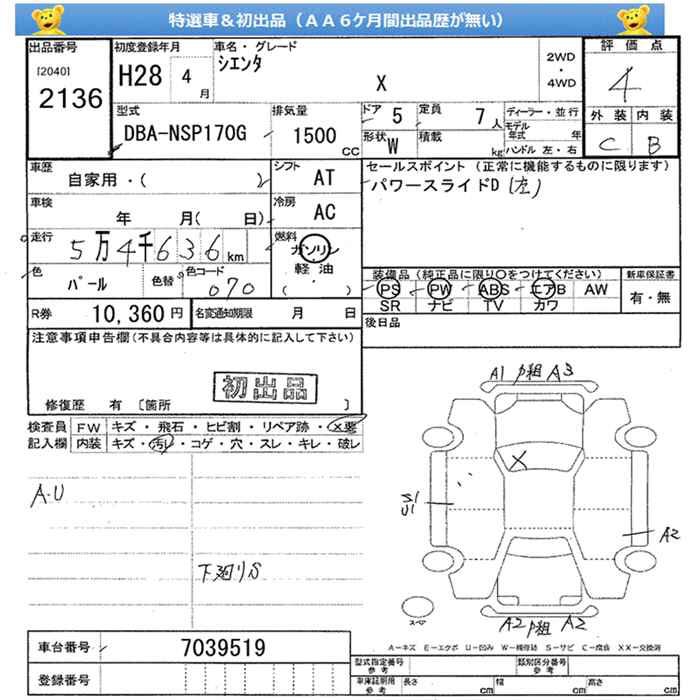 特選車＆初出品（ＡＡ６ケ月間出品歴が無い）
出品番号
[2040]
2136
初度登録年月
H28 4 月
車名・グレード
シエンタ
X
2WD
・
4WD
評価点
4
外装 内装
C B
型式
DBA-NSP170G
排気量
1500 CC
ドア 5
定員 7 人
形状 W
積載 kg
ディーラー・並行
モデル年式 年
ハンドル 左・右
車歴
自家用・( )
シフト AT
セールスポイント（正常に機能するものに限ります）
パワースライドD (左)
車検
年 月( 日)
冷房 AC
走行
5万4千636km
燃料
ガソリン
軽油
( ・ )
色
パール
色替
色コード
070
装備品（純正品に限り○をつけてください）
PS PW ABS エアB AW
SR ナビ TV カワ
新車保証書
有・無
R券 10,360円
名変通知期限 月 日
後日品
注意事項申告欄（不具合内容等は具体的に記入して下さい）
初出品
修復歴 有 〔箇所 〕
検査員記入欄
FW キズ・飛石・ヒビ割・リペア跡・X悪
内装 キズ・汚レ・コゲ・穴・スレ・キレ・破レ
A・U
下廻りS
A1 P組 A3
X
S1
U1
A2
スペア
A2 P組 A2
A－キズ E－エクボ U－凹み W－補修跡 S－サビ C－腐食 XX－交換済
車台番号 7039519
登録番号
型式指定番号 参考
類別区分番号 参考
車庫証明用 参考
長さ cm
幅 cm
高さ cm